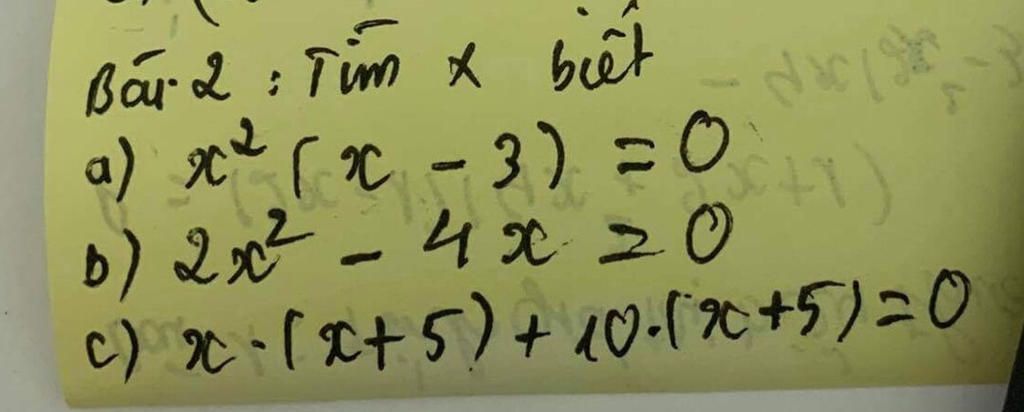 Bài 2 : Tìm x biết
a) x² (x - 3) = 0
b) 2x² - 4x = 0
c) x . (x + 5) + 10 . (x + 5) = 0